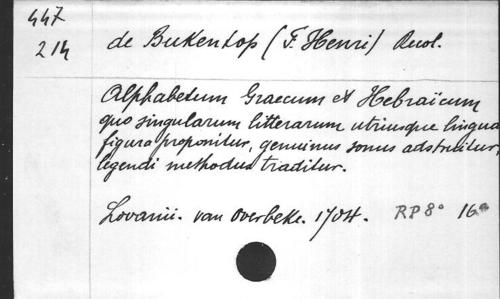 447
214
de Bukentop (F. Henri) Recol.
Alphabetum Graecum et Hebraïcum
quo singularum litterarum utriusque lingua
figura proponitur, genuinus sonus adstruitur,
legendi methodus traditur.
Lovanii. van Overbeke. 1704. RP 8° 16°